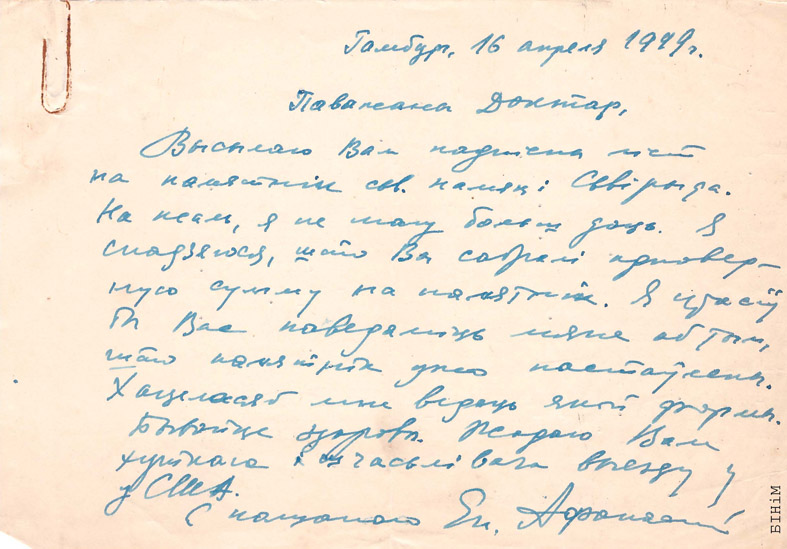 Гамбург, 16 апреля 1949 г.
Паважана Доктар,
Высылаю Вам падпісны ліст
на памятнік св. памяці Свірыда.
На жаль, я не магу больш даць. Я
спадзяюся, што Вы сабралі адповед-
ную сумму на памятнік. Я прасіў
бы Вас паведаміць мяне аб тым,
што памятнік ужо пастаўлены.
Хацеласяб мне ведаць якой формы.
Бывайце здаровы. Жадаю Вам
хуткага і шчасьлівага выезду у
у США.
С пашанаю Еп. Афанасій
БІНіМ